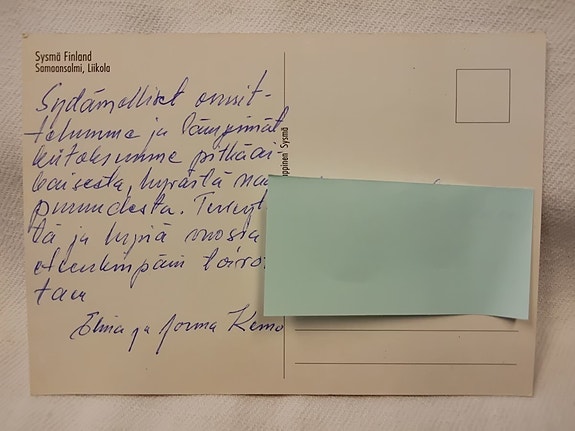 Sysmä Finland
Samaansalmi, Liikola
Sydämelliset onnit-
telumme ja lämpimät
kiitoksemme pitkäai-
kaisesta, hyvästä naa
puruudesta. Terveyt
tä ja hyviä vuosia
eteenkinpäin toivot
taen
Elina ja Jorma Kemo
ppinen Sysmä